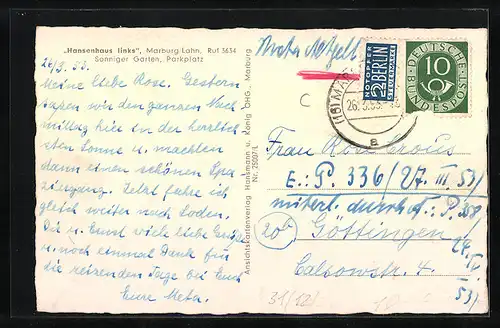 „Hansenhaus links", Marburg/Lahn, Ruf 3634
Sonniger Garten, Parkplatz
26/3. 53.
Meine liebe Rose. Gestern
saßen wir den ganzen Nach
mittag hier in der herrlich
sten Sonne u. machten
dann einen schönen Spa
ziergang. Jetzt fahre ich
gleich weiter nach
Dir u. Ernst viele liebe Grüße
u. noch einmal Dank für
die reizenden Tage bei Euch
Eure Meta.
Ansichtskartenverlag Hansmann u. König OHG., Marburg
Nr. 25097/L
NOTOPFER
2 BERLIN
STEUERMARKE
DEUTSCHE BUNDESPOST
10
(16) MAR
26.3.53
a
C
Frau Rose
E.: P. 336/27. III. 53/
(20b)
Göttingen
Calsowstr. 4.
53/
31/(12)